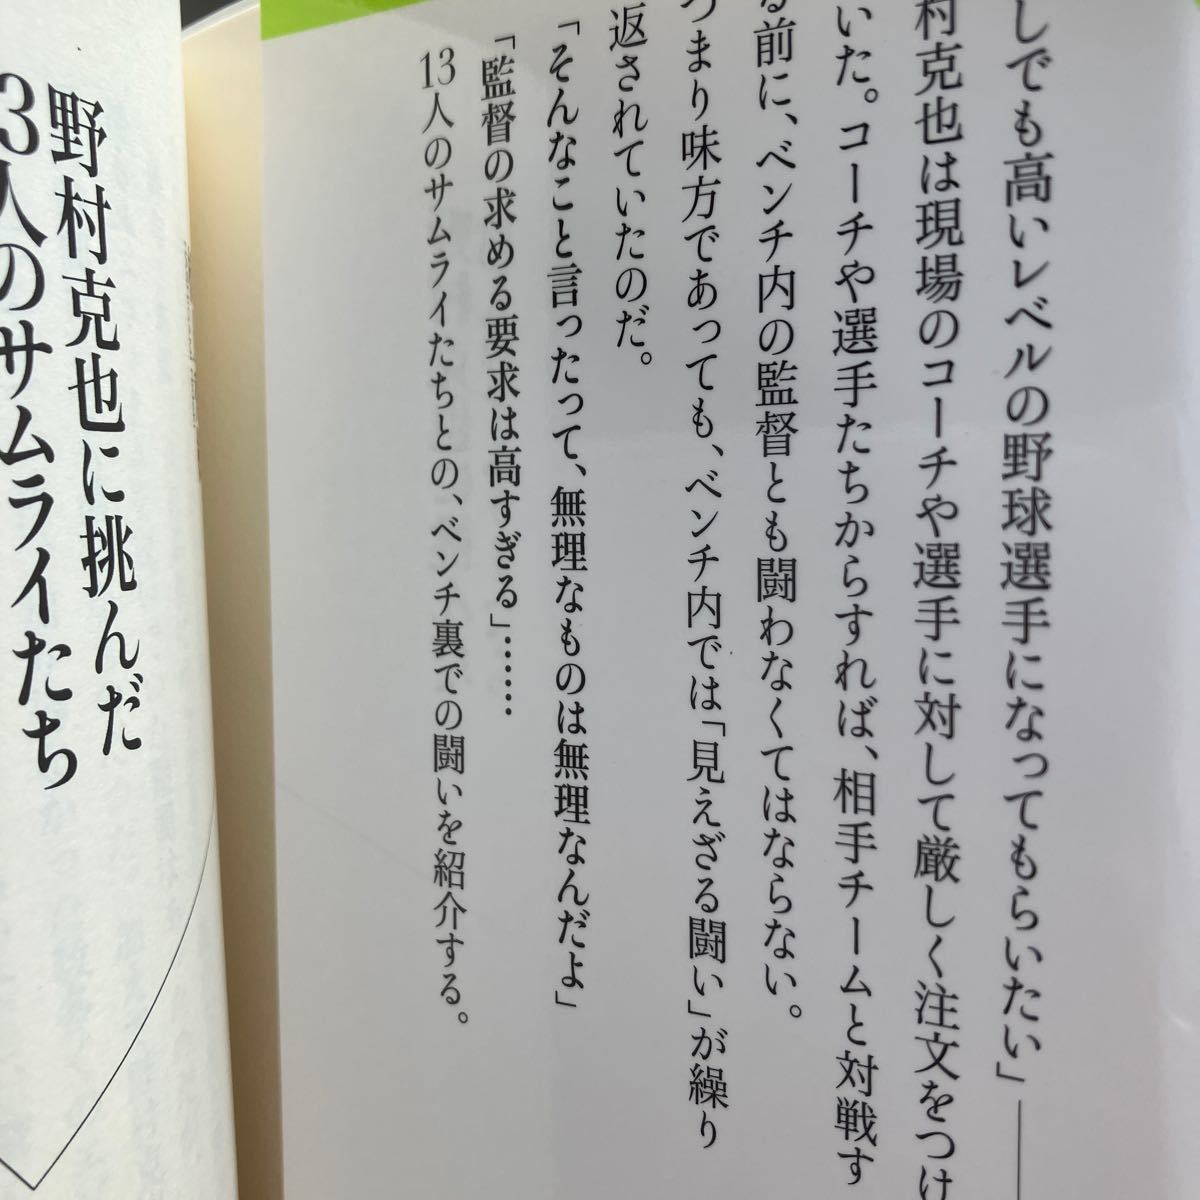 しでも高いレベルの野球選手になってもらいたい」――
村克也は現場のコーチや選手に対して厳しく注文をつけ
いた。コーチや選手たちからすれば、相手チームと対戦す
る前に、ベンチ内の監督とも闘わなくてはならない。
つまり味方であっても、ベンチ内では「見えざる闘い」が繰り
返されていたのだ。
「そんなこと言ったって、無理なものは無理なんだよ」
「監督の求める要求は高すぎる」……
13人のサムライたちとの、ベンチ裏での闘いを紹介する。
野村克也に挑んだ
13人のサムライたち